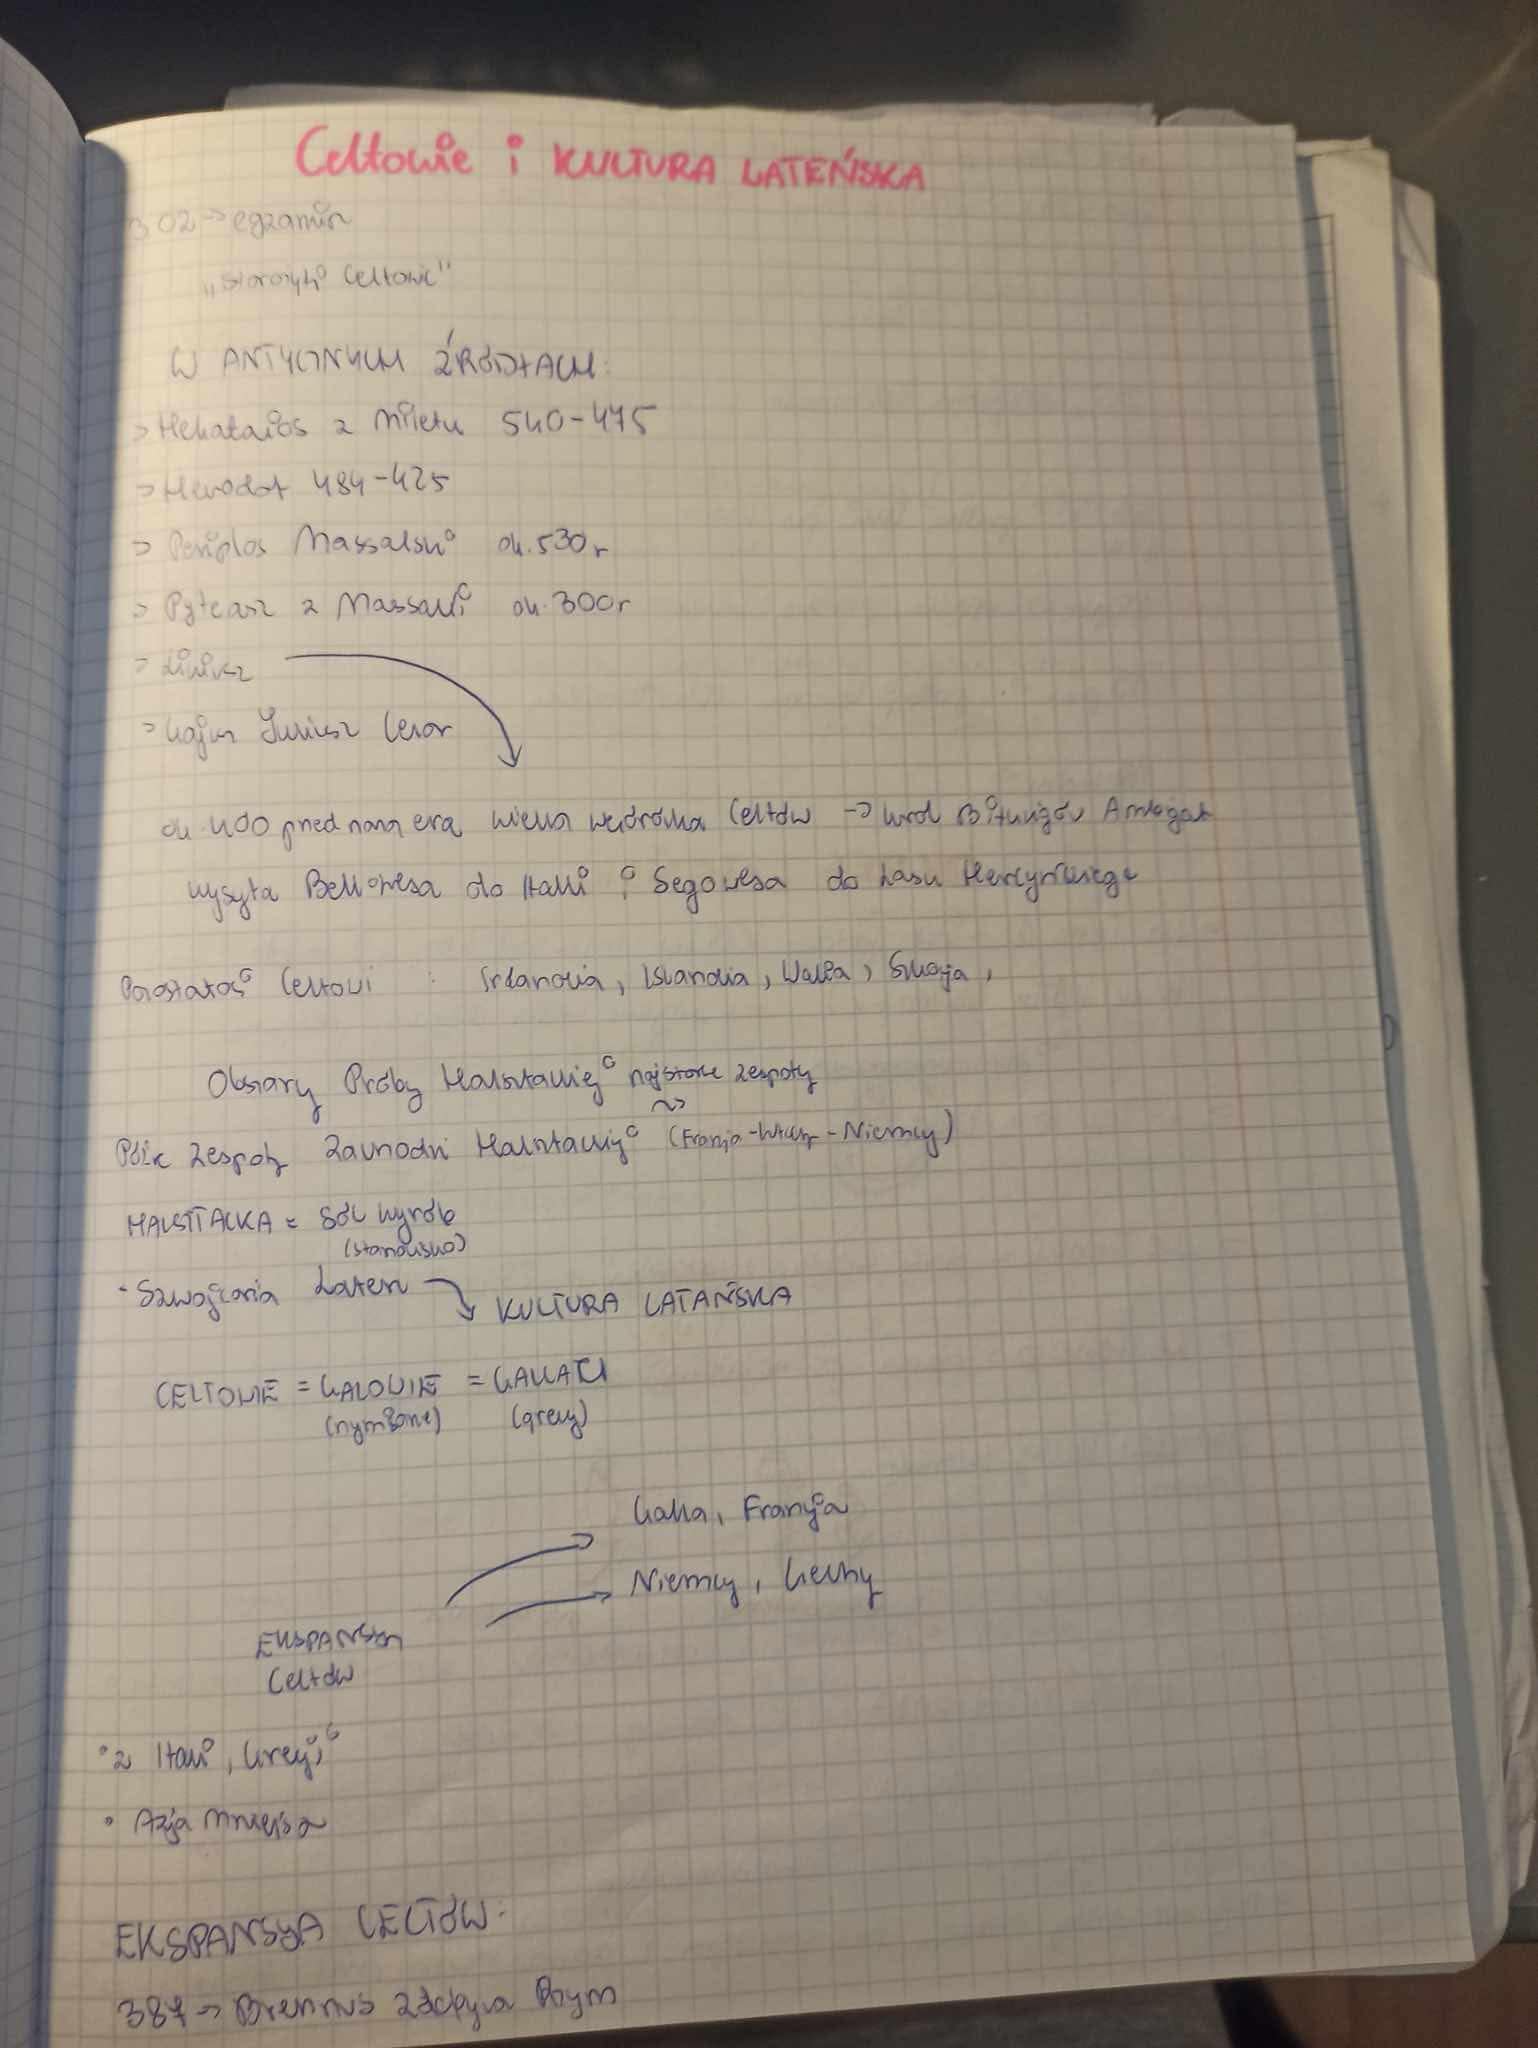 Celtowie i KULTURA LATEŃSKA
3 02 -> egzamin
„starożytni Celtowie"
W ANTYCZNYCH ŹRÓDŁACH:
-> Hekataios z Miletu 540-475
-> Herodot 484-425
-> Periplos Massalski ok. 530r
-> Pyteasz z Massalii ok. 300r
-> Liwiusz
-> Gajus Juliusz Cezar
ok. 400 przed naszą erą wielka wędrówka Celtów -> król Biturigów Ambigat
wysyła Bellowesa do Italii i Segowesa do Lasu Hercyńskiego
Pozostałość Celtowi : Irlandia, Islandia, Walia, Szkocja,
Obszary Próby Halsztackiej najstarsze zespoły
Późn zespoły Zachodni Halsztackiej (Francja-Włochy-Niemcy)
HALSTTACKA = sól wyrób
(stanowisko)
- Szwajcaria Laten
KULTURA LATAŃSKA
CELTOWIE = GALOWIE = GALLACI
(rzymianie) (grecy)
Galia, Francja
Niemcy, Czechy
EKSPANSJA
Celtów
• z Italii, Grecji
• Azja Mniejsza
EKSPANSJA CELTÓW:
387 -> Brennus zdobywa Rzym